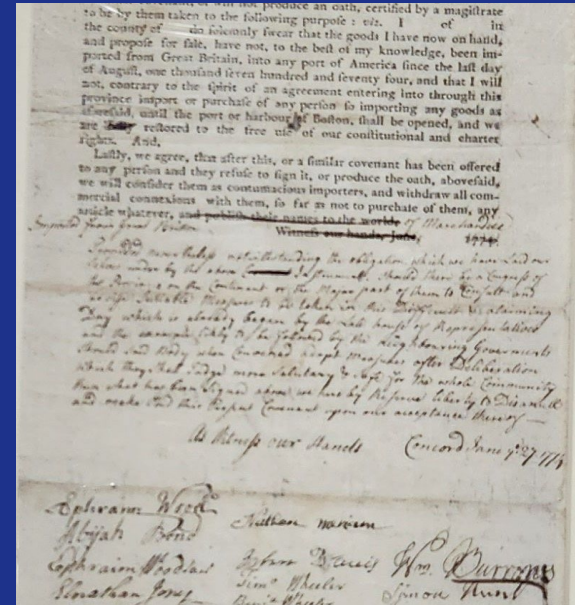 covenant, or will not produce an oath, certified by a magistrate
to be by them taken to the following purpose: viz. I of in
the county of do solemnly swear that the goods I have now on hand,
and propose for sale, have not, to the best of my knowledge, been im-
ported from Great Britain, into any port of America since the last day
of August, one thousand seven hundred and seventy four, and that I will
not, contrary to the spirit of an agreement entering into through this
province import or purchase of any person so importing any goods as
aforesaid, until the port or harbour of Boston, shall be opened, and we
are fully restored to the free use of our constitutional and charter
rights. And,
Lastly, we agree, that after this, or a similar covenant has been offered
to any person and they refuse to sign it, or produce the oath, abovesaid,
we will consider them as contumacious importers, and withdraw all com-
mercial connexions with them, so far as not to purchase of them, any
article whatever, and publish their names to the world. of Merchandize
Imported from Great Britain
Witness our hands, June, 1774.
Provided nevertheless notwithstanding the obligation which we have laid our
selves under by the above Instrument, should there be a Congress of
the Provinces on the Continent or the Major part of them to Consult and
advise suitable Measures to be taken in this Difficult & alarming
Day which is already began by the Late house of Representatives
and the example likely to be followed by the Neighbouring Governments
should said Body when Convened adopt measures after Deliberation
which they shall Judge more Salutary & safe for the whole Community
than what has been signed above we hereby Reserve liberty to Disannull
and make Void this Present Covenant upon our acceptance thereof
As Witness our Hands Concord June ye 27 1774
Ephraim Wood
Abijah Bond Nathan
Ephraim Joseph Davis Wm Burrows
Elnathan Jones Simn Wheeler Simon Hunt
Wheeler